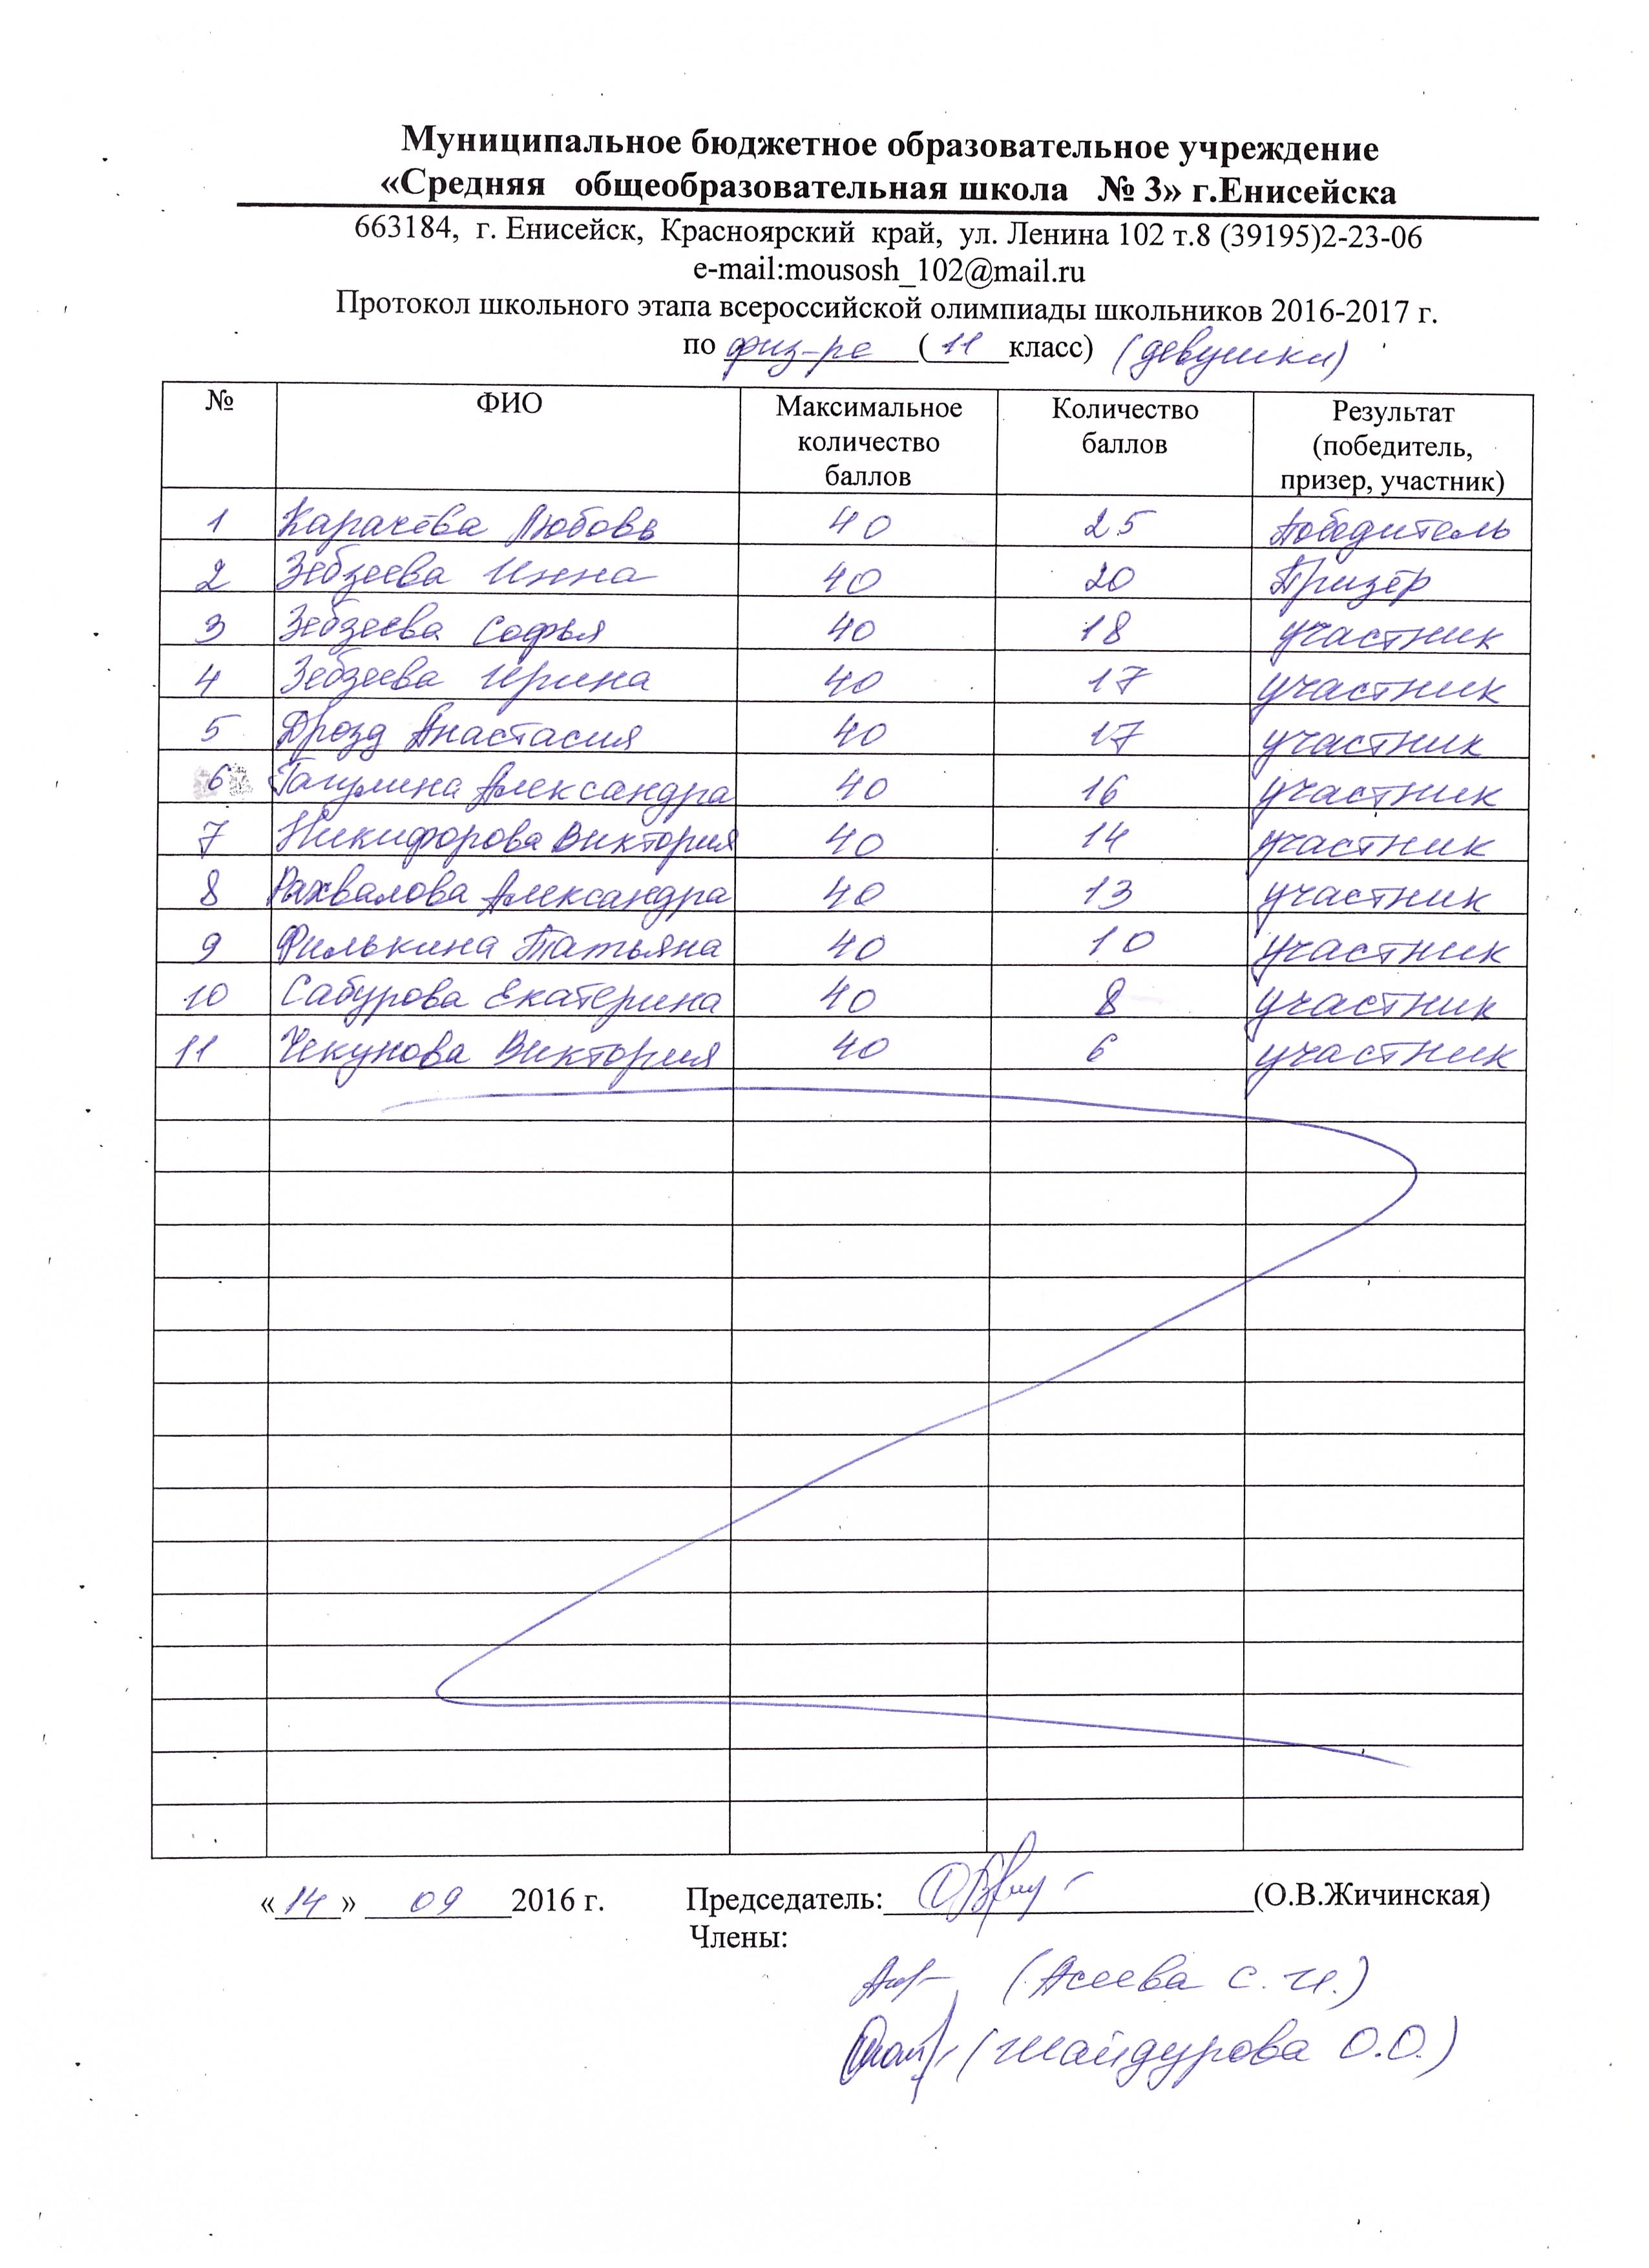 Муниципальное бюджетное образовательное учреждение
«Средняя общеобразовательная школа № 3» г.Енисейска
663184, г. Енисейск, Красноярский край, ул. Ленина 102 т.8 (39195)2-23-06
e-mail:mousosh_102@mail.ru
Протокол школьного этапа всероссийской олимпиады школьников 2016-2017 г.
по физ-ре (11 класс) (девушки)
№ ФИО Максимальное количество баллов Количество баллов Результат (победитель, призер, участник)
1 Карачёва Любовь 40 25 Победитель
2 Зебзеева Инна 40 20 Призёр
3 Зебзеева Софья 40 18 участник
4 Зебзеева Ирина 40 17 участник
5 Дрозд Анастасия 40 17 участник
6 Александра 40 16 участник
7 Никифорова Виктория 40 14 участник
8 Рахвалова Александра 40 13 участник
9 Филькина Татьяна 40 10 участник
10 Сабурова Екатерина 40 8 участник
11 Чекунова Виктория 40 6 участник
«14» 09 2016 г. Председатель: (О.В.Жичинская)
Члены:
(Асеева С.И.)
(Шайдурова О.О.)